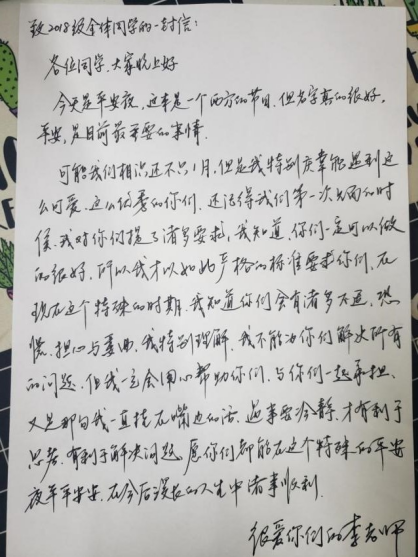 致2018级全体同学的一封信：
各位同学，大家晚上好
今天是平安夜，这本是一个西方的节日，但名字真的很好，
平安，是目前最重要的事情.
可能我们相识还不只1月，但是我特别庆幸能遇到这
么可爱、这么优秀的你们，还记得我们第一次见面的时
候，我对你们提了诸多要求，我知道，你们一定可以做
的很好，所以我才以如此严格的标准要求你们，在
现在这个特殊的时期，我知道你们会有诸多不适、恐
慌、担心与委曲，我特别理解，我不能为你们解决所有
的问题，但我一定会用心帮助你们，与你们一起承担.
又是那句我一直挂在嘴边的话，遇事要冷静，才有利于
思考，有利于解决问题，愿你们都能在这个特殊的平安
夜平平安安，在今后漫长的人生中诸事顺利.
很爱你们的李老师